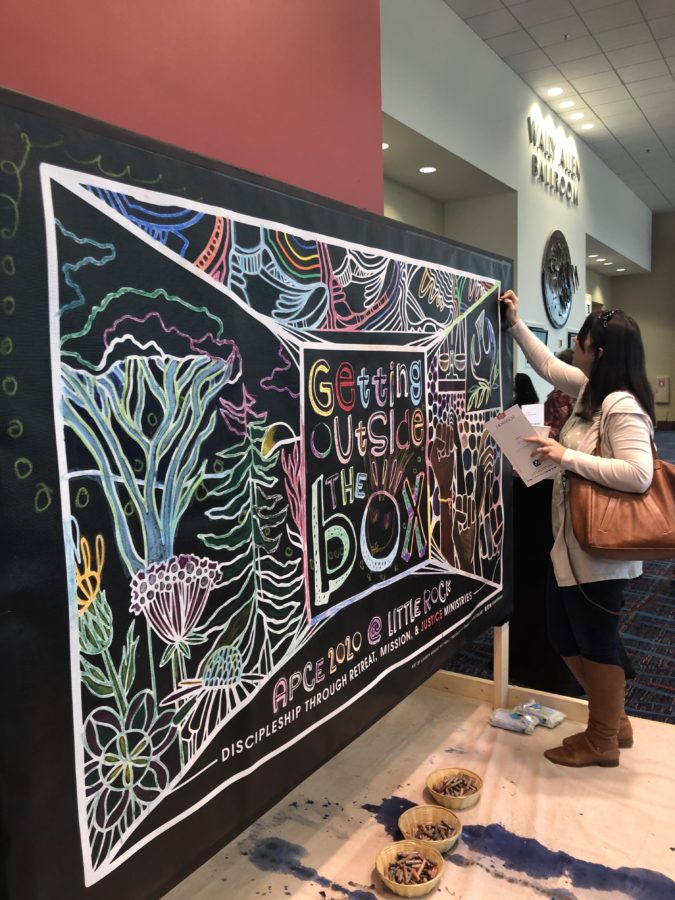 WALLY ALLEN
BALLROOM
Getting
OUTSIDE
THE
BOX
APCE 2020 @ LITTLE ROCK
DISCIPLESHIP THROUGH RETREAT, MISSION, & JUSTICE MINISTRIES